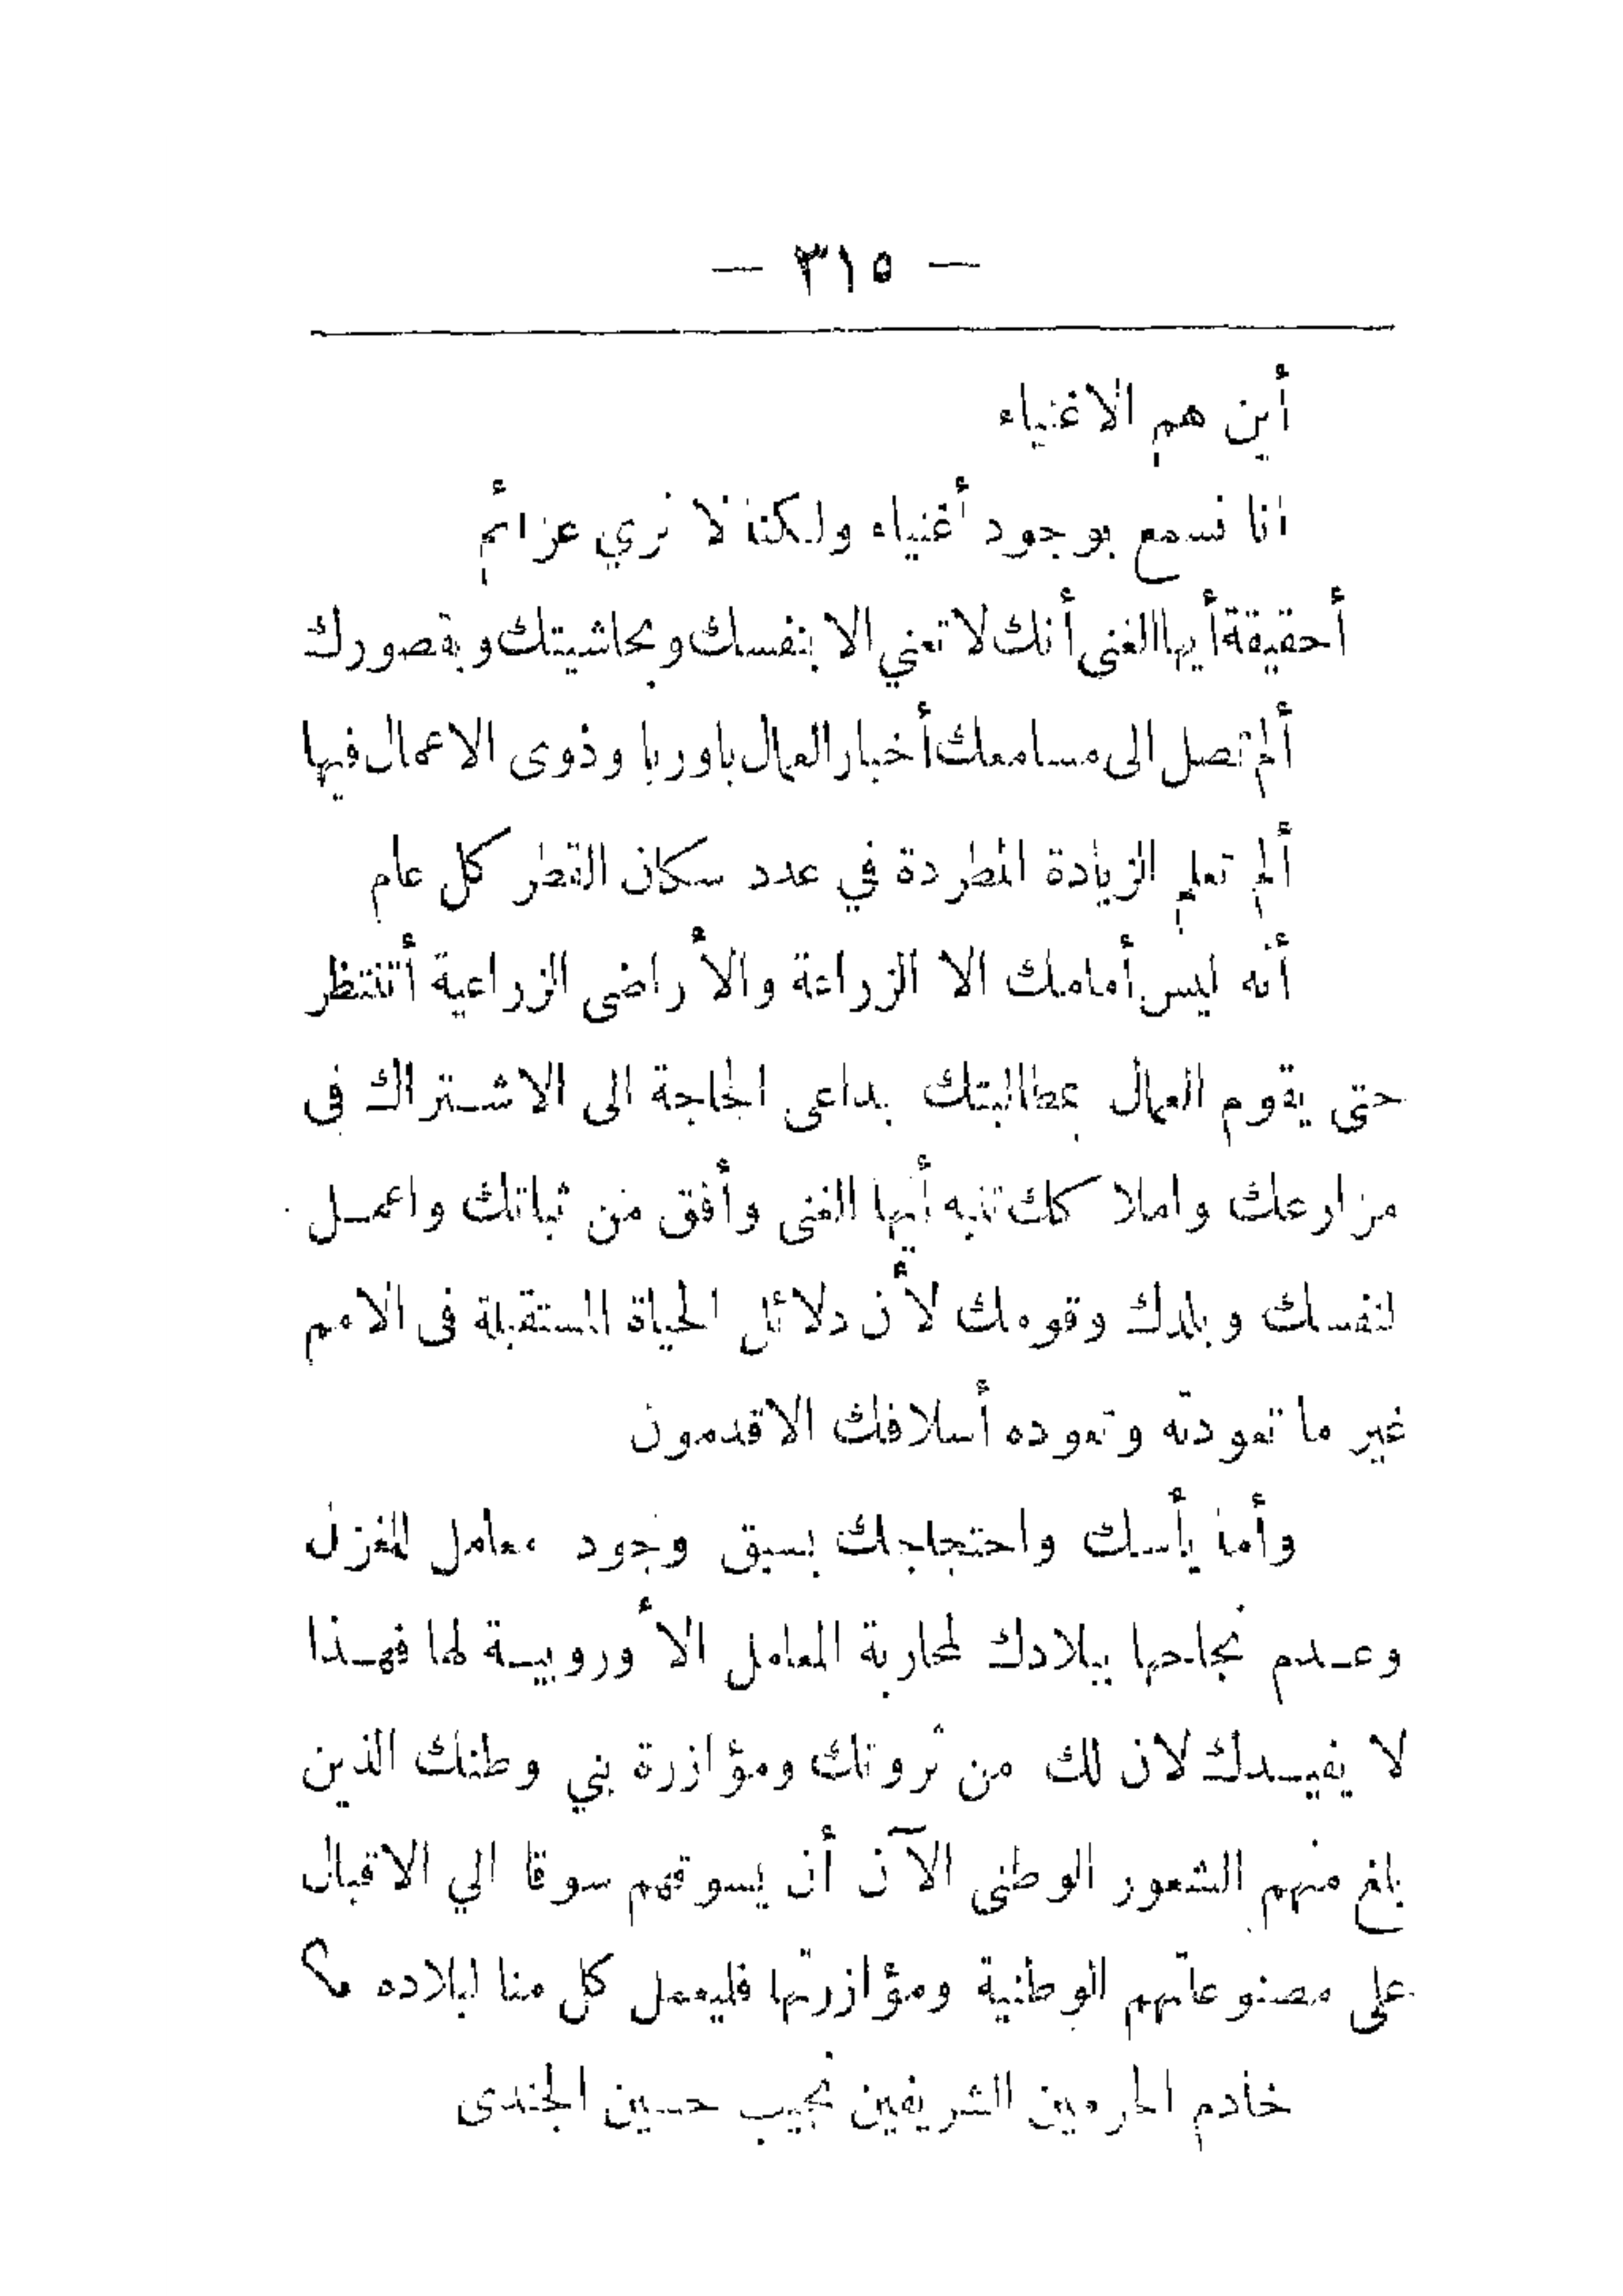 — ٣١٥ —
أين هم الاغنياء
انا نسمع بوجود أغنياء ولكننا لا نري عزائم
أحقيقة أيها الغنى أنك لا تعني الا بنفسك وبحاشيتك وبقصورك
ألم تصل الى مسامعك أخبار العمال باوربا وذوى الاعمال فيها
ألم تعلم الزيادة المطردة في عدد سكان القطر كل عام
أنه ليس أمامك الا الزراعة والأراضى الزراعية أتنتظر
حتى يقوم العمال بمطالبتك بداعى الحاجة الى الاشتراك فى
مزارعك واملاكك تنبه أيها الغنى وأفق من ثباتك واعمل
لنفسك وبلدك وقومك لأن دلائل الحياة المستقبلة فى الامم
غير ما تعودته وتعوده أسلافك الاقدمون
وأما يأسك واحتجاجك بسبق وجود معامل للغزل
وعدم نجاحها ببلادك لمحاربة المعامل الأوروبية لها فهذا
لا يفيدك لان لك من ثروتك ومؤازرة بني وطنك الذين
بلغ منهم الشعور الوطنى الآن أن يسوقهم سوقا الي الاقبال
على مصنوعاتهم الوطنية ومؤازرتها فليعمل كل منا لبلاده
خادم الحرمين الشريفين نجيب حسين الجندى